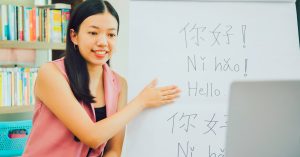 你好!
Nǐ hǎo!
Hello
你好
Nǐ hǎ